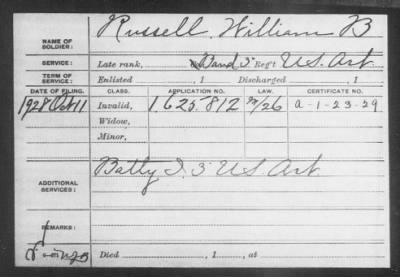 NAME OF SOLDIER: Russell, William B
SERVICE: Late rank, Band 3" Reg't U.S. Art
TERM OF SERVICE: Enlisted , 1 Discharged , 1
DATE OF FILING. CLASS. APPLICATION NO. LAW. CERTIFICATE NO.
1928 Oct 11 Invalid, 1,625 812 /26 a-1-23-29
Widow,
Minor,
ADDITIONAL SERVICES: Batty I. 3" U.S. Art
REMARKS:
Died , 1 , at